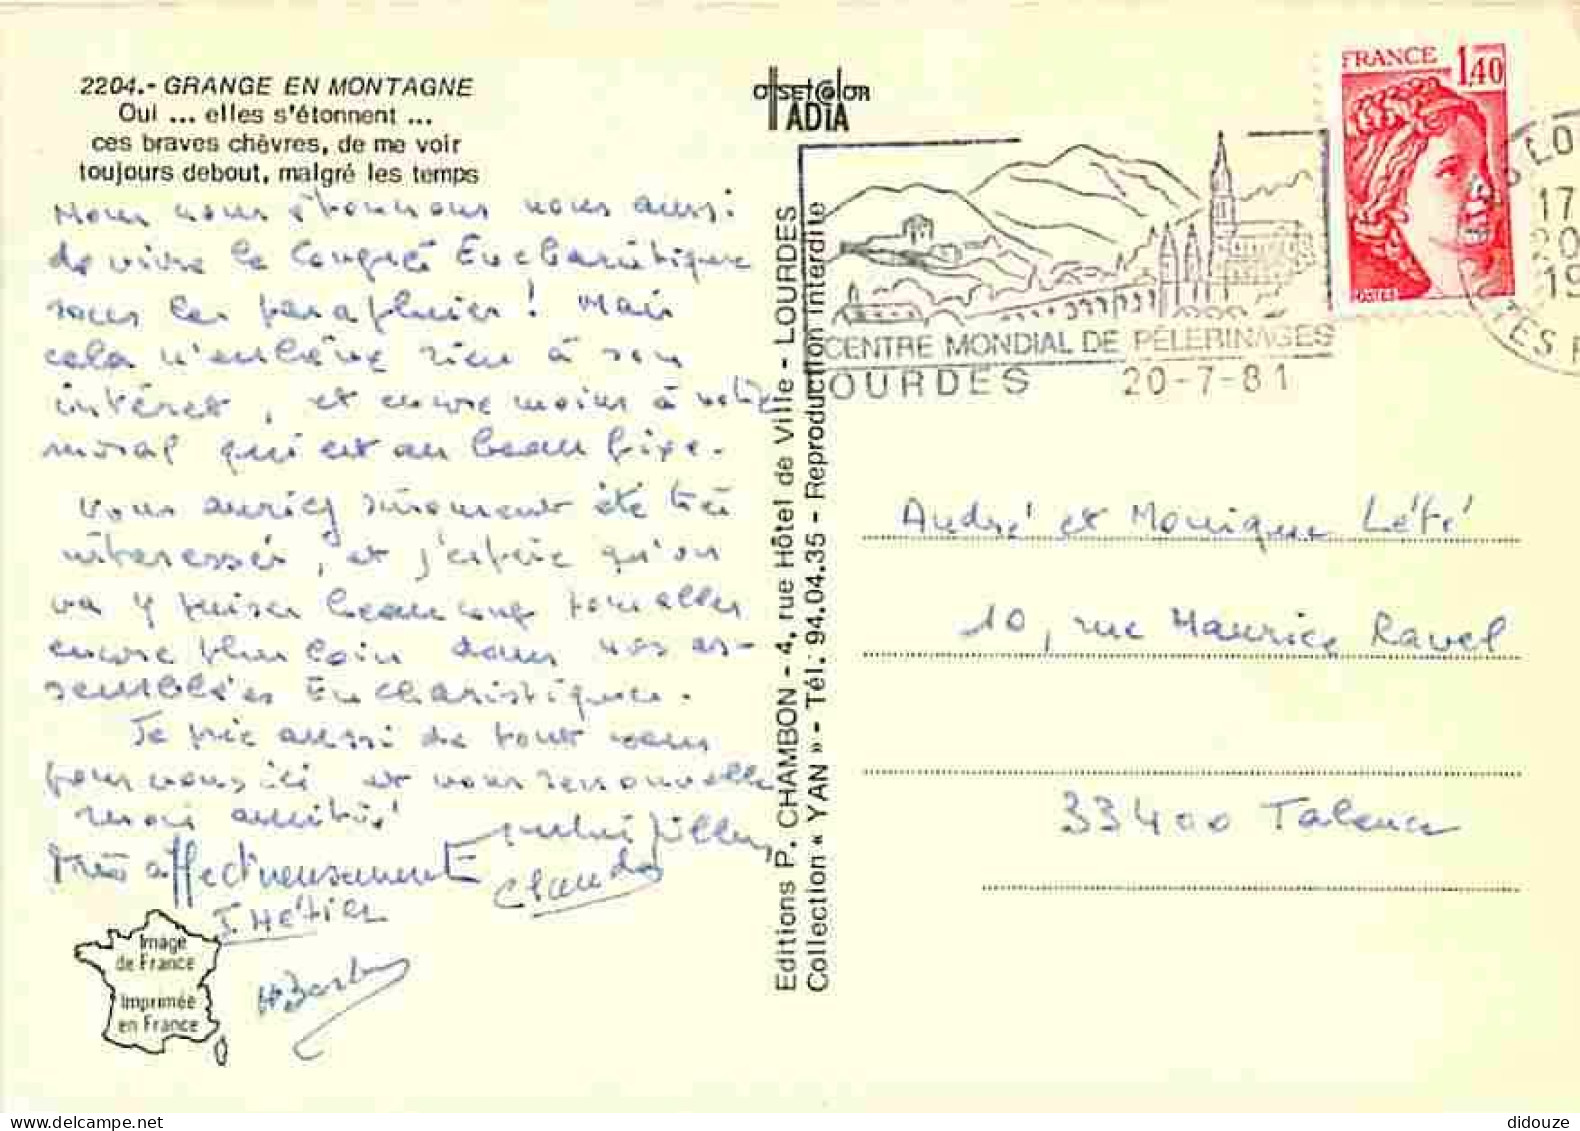 2204.- GRANGE EN MONTAGNE
Oui ... elles s'étonnent ...
ces braves chèvres, de me voir
toujours debout, malgré les temps
Nous nous étonnons nous aussi
de vivre le Congrès Eucharistique
sous les parapluies ! Mais
cela n'enlève rien à son
intérêt, et encore moins à notre
moral qui est au beau fixe.
Vous auriez sûrement été très
intéressés, et j'espère qu'on
va y puiser beaucoup pour aller
encore plus loin dans nos as-
semblées Eucharistiques.
Je prie aussi de tout cœur
pour vous ici et vous renouvelle
mon amitié
Très affectueusement
Claude
J. Hétier
Image
de France
Imprimée
en France
Editions P. CHAMBON - 4, rue Hôtel de Ville - LOURDES
Collection « YAN » - Tél. 94.04.35 - Reproduction interdite
offsetcolor
ADIA
FRANCE 1,40
POSTES
CENTRE MONDIAL DE PÈLERINAGES
OURDES 20-7-81
17
20
19
André et Monique Lété
10, rue Maurice Ravel
33400 Talence
didouze